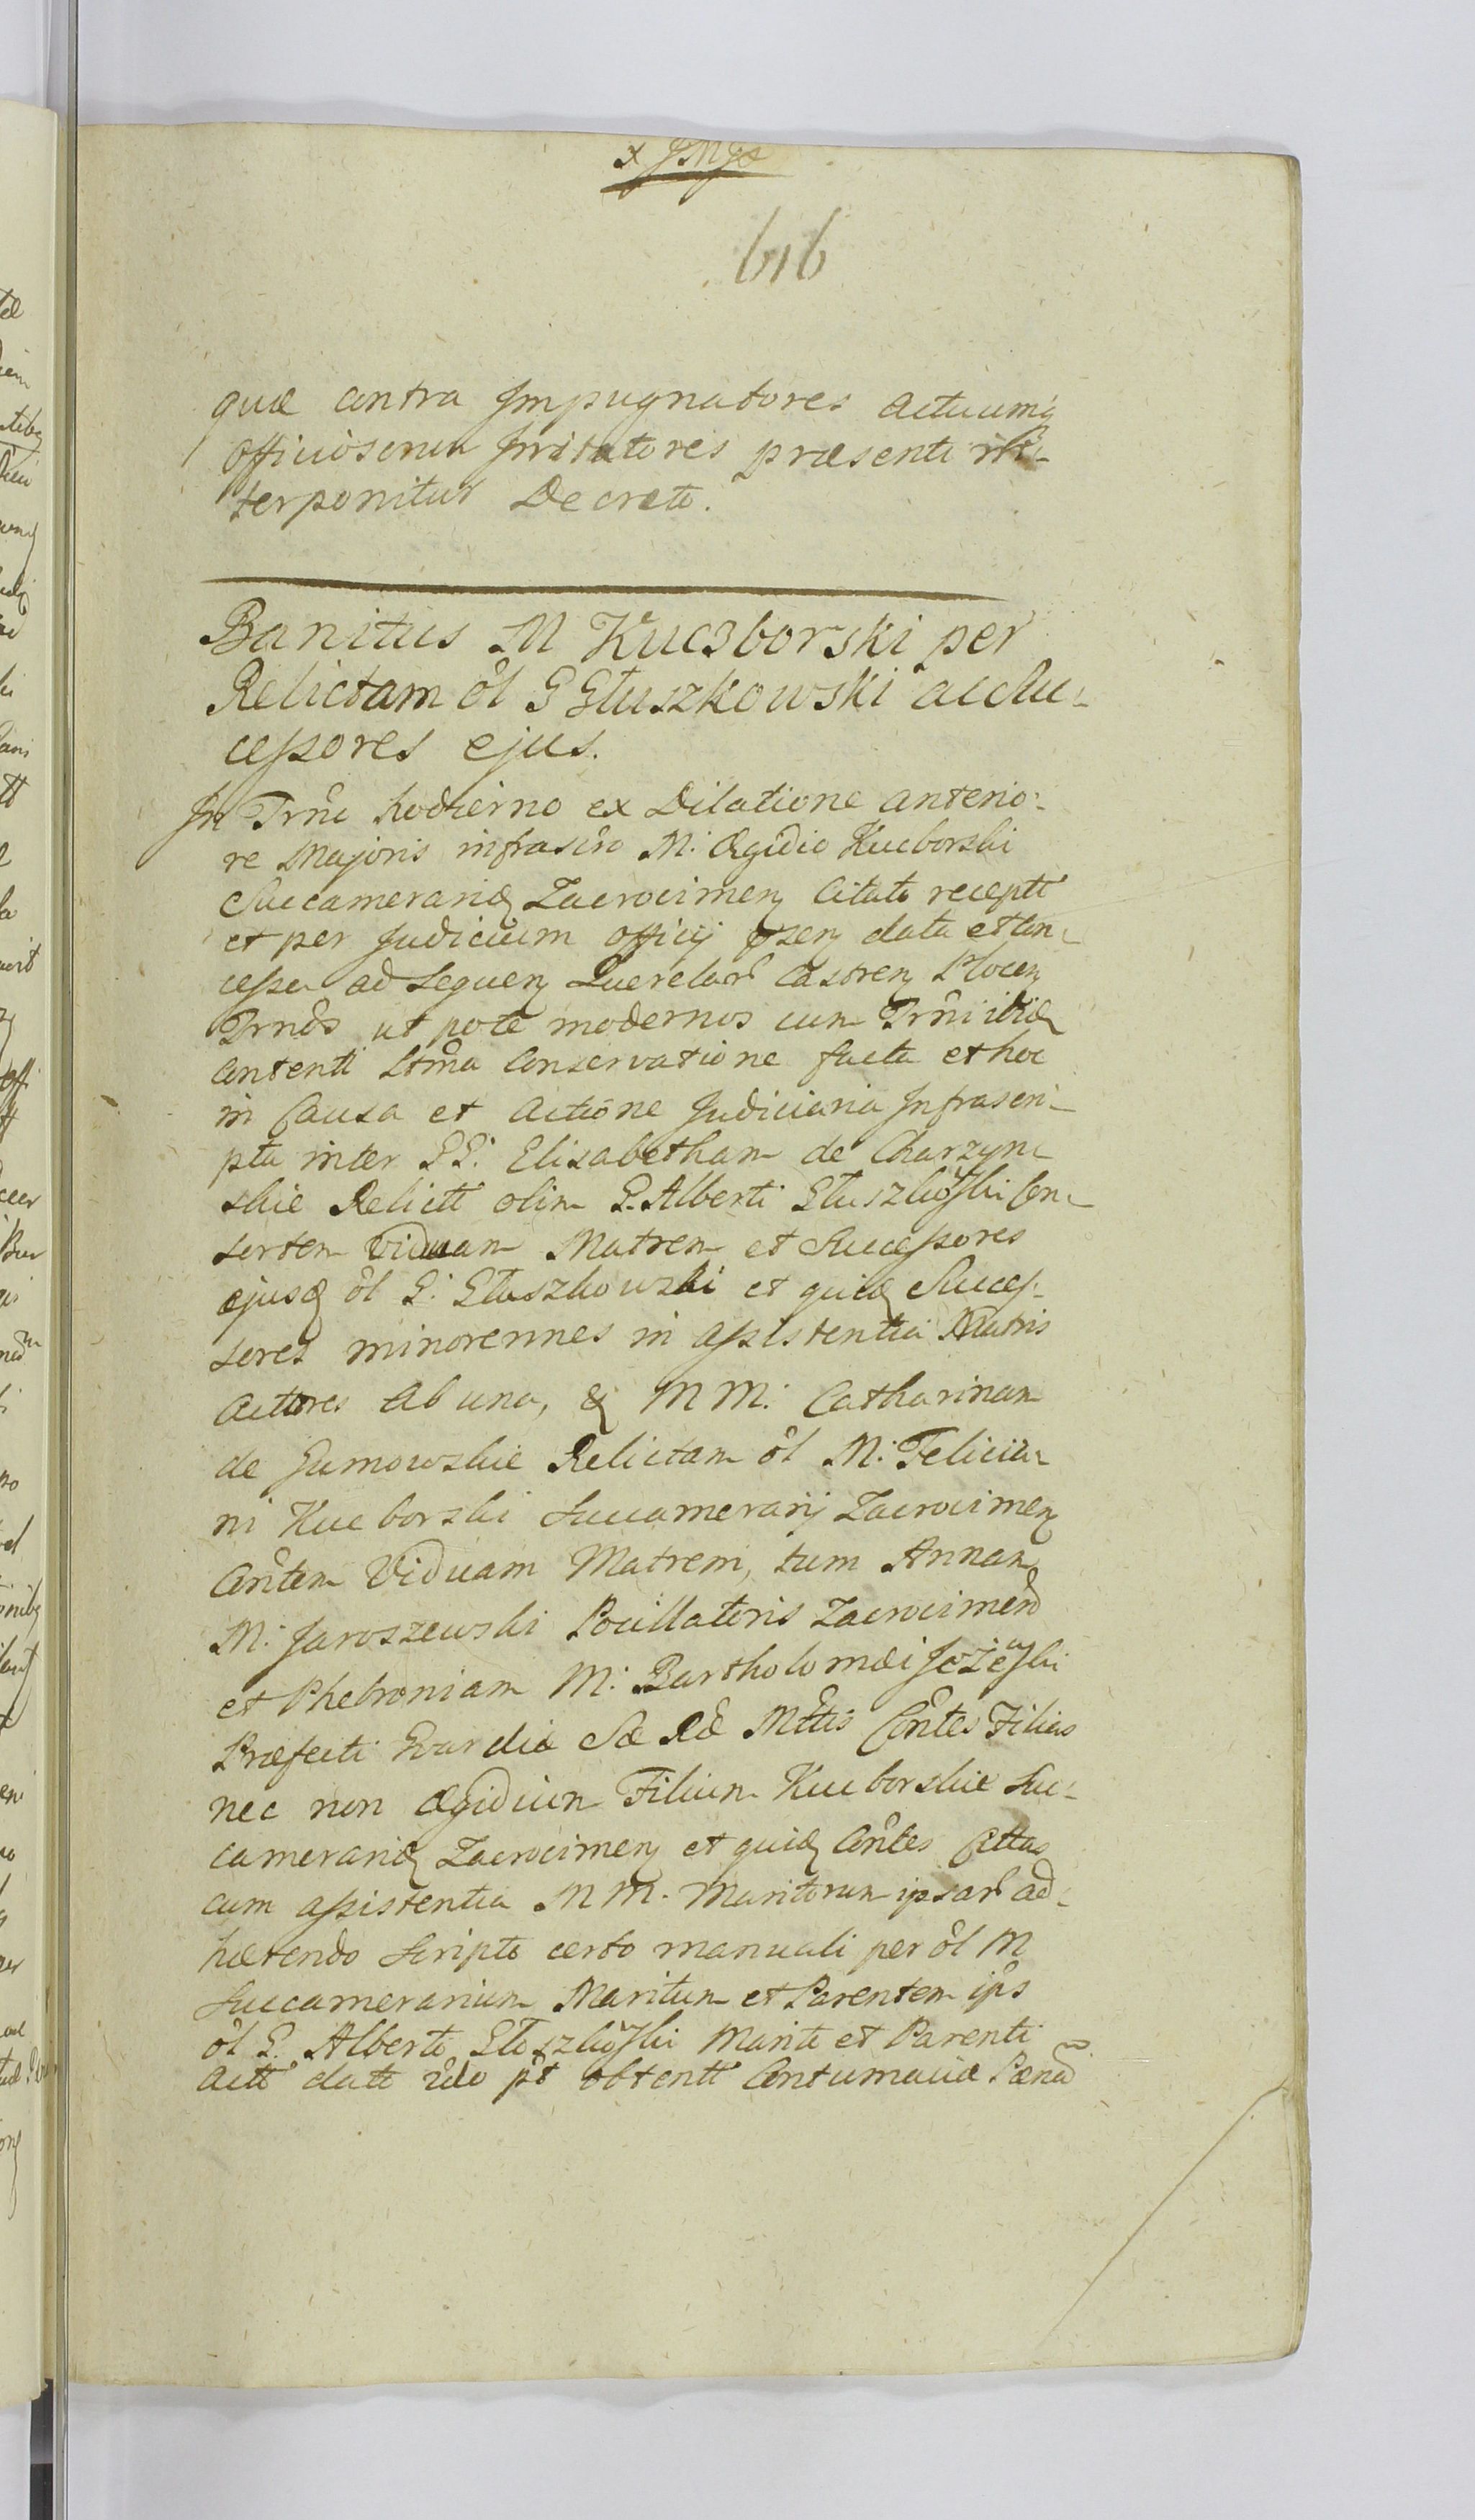 616
quæ contra Impugnatores actuumq
officiosorum Irritatores præsenti in-
terponitur Decreto.
Banitus M Kuczborski per
Relictam ol G Głuszkowski ac Su-
cessores ejus.
In Trno hodierno ex Dilatione anterio-
re Majoris infrascro M. Ægidio Kucborski
Succamerarid Zacrocimen Citato receptt
et per Judicium officij psen data et con-
cessa ad sequen Querelar Castren Plocen
Trnos ut pote modernos cum Trni ibid
contenti Conservatione facta et hoc
in Causa et actione Judiciaria Infrascri-
pta inter GG. Elisabetham de Charzyn-
skie Relictt olim G. Alberti Głuszkowski Con-
sortem Viduam Matrem et Successores
ejusd ol G. Głuszkowski et quid Succes-
sores minorennes in assistentia Matris
Actores ab una, & MM. Catharinam
de Gumowskie Relictam ol M. Felicia-
ni Kucborski Succamerarij Zacrocimen
Contem Viduam Matrem, tum Annam
M. Jaroszewski Pocillatoris Zacrocimen
et Phebroniam M. Bartholomæi Jeżewski
Præfecti Gvardiæ Sæ Ræ Mttis Contes Filias
nec non Ægidium Filium Kucborskie Suc-
camerarid Zacrocimen et quid Contes Cttas
cum assistentia MM. Maritorum ipsar ad-
hærendo Scripto certo manuali per ol M
Succamerarium Maritum et Parentem ips
ol G. Alberto Głuszkowski Marito et Parenti
Actt datt obtentt Contumaciæ Pæna